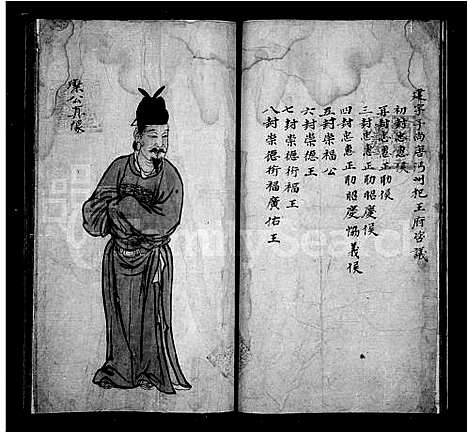 建寧于尚唐沔州杞王府咨議
初封忠惠侯
再封忠惠正肋侯
三封忠惠正肋昭慶侯
四封忠惠正肋昭慶恊義侯
五封崇福公
六封崇德王
七封崇德衍福王
八封崇德衍福廣佑王
公肖像
FamilySearch